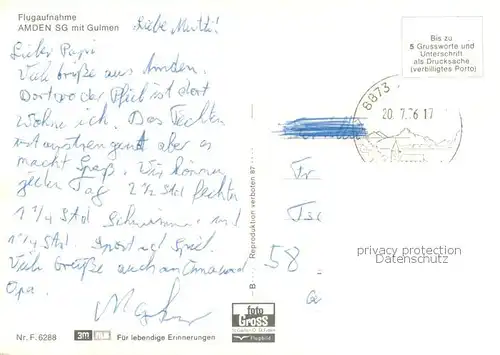 Flugaufnahme
AMDEN SG mit Gulmen
Liebe Mutti!
Lieber Papi
Viele Grüße aus Amden.
Dort wo der Pfeil ist dort
wohne ich. Das Fechten
ist anstrengend aber es
macht Spaß. Wir können
jeden Tag 2 1/2 Std fechten
1 1/4 Std Schwimmen und
1 1/4 Std. Sport und Spiel.
Viele Grüße auch an Oma und
Opa.
Bis zu
5 Grussworte und
Unterschrift
als Drucksache
(verbilligtes Porto)
8873
20.7.76 17
58
privacy protection
Datenschutz
B
Reproduktion verboten 87
foto
Gross
Flugbild
Nr. F. 6288
3m
Für lebendige Erinnerungen